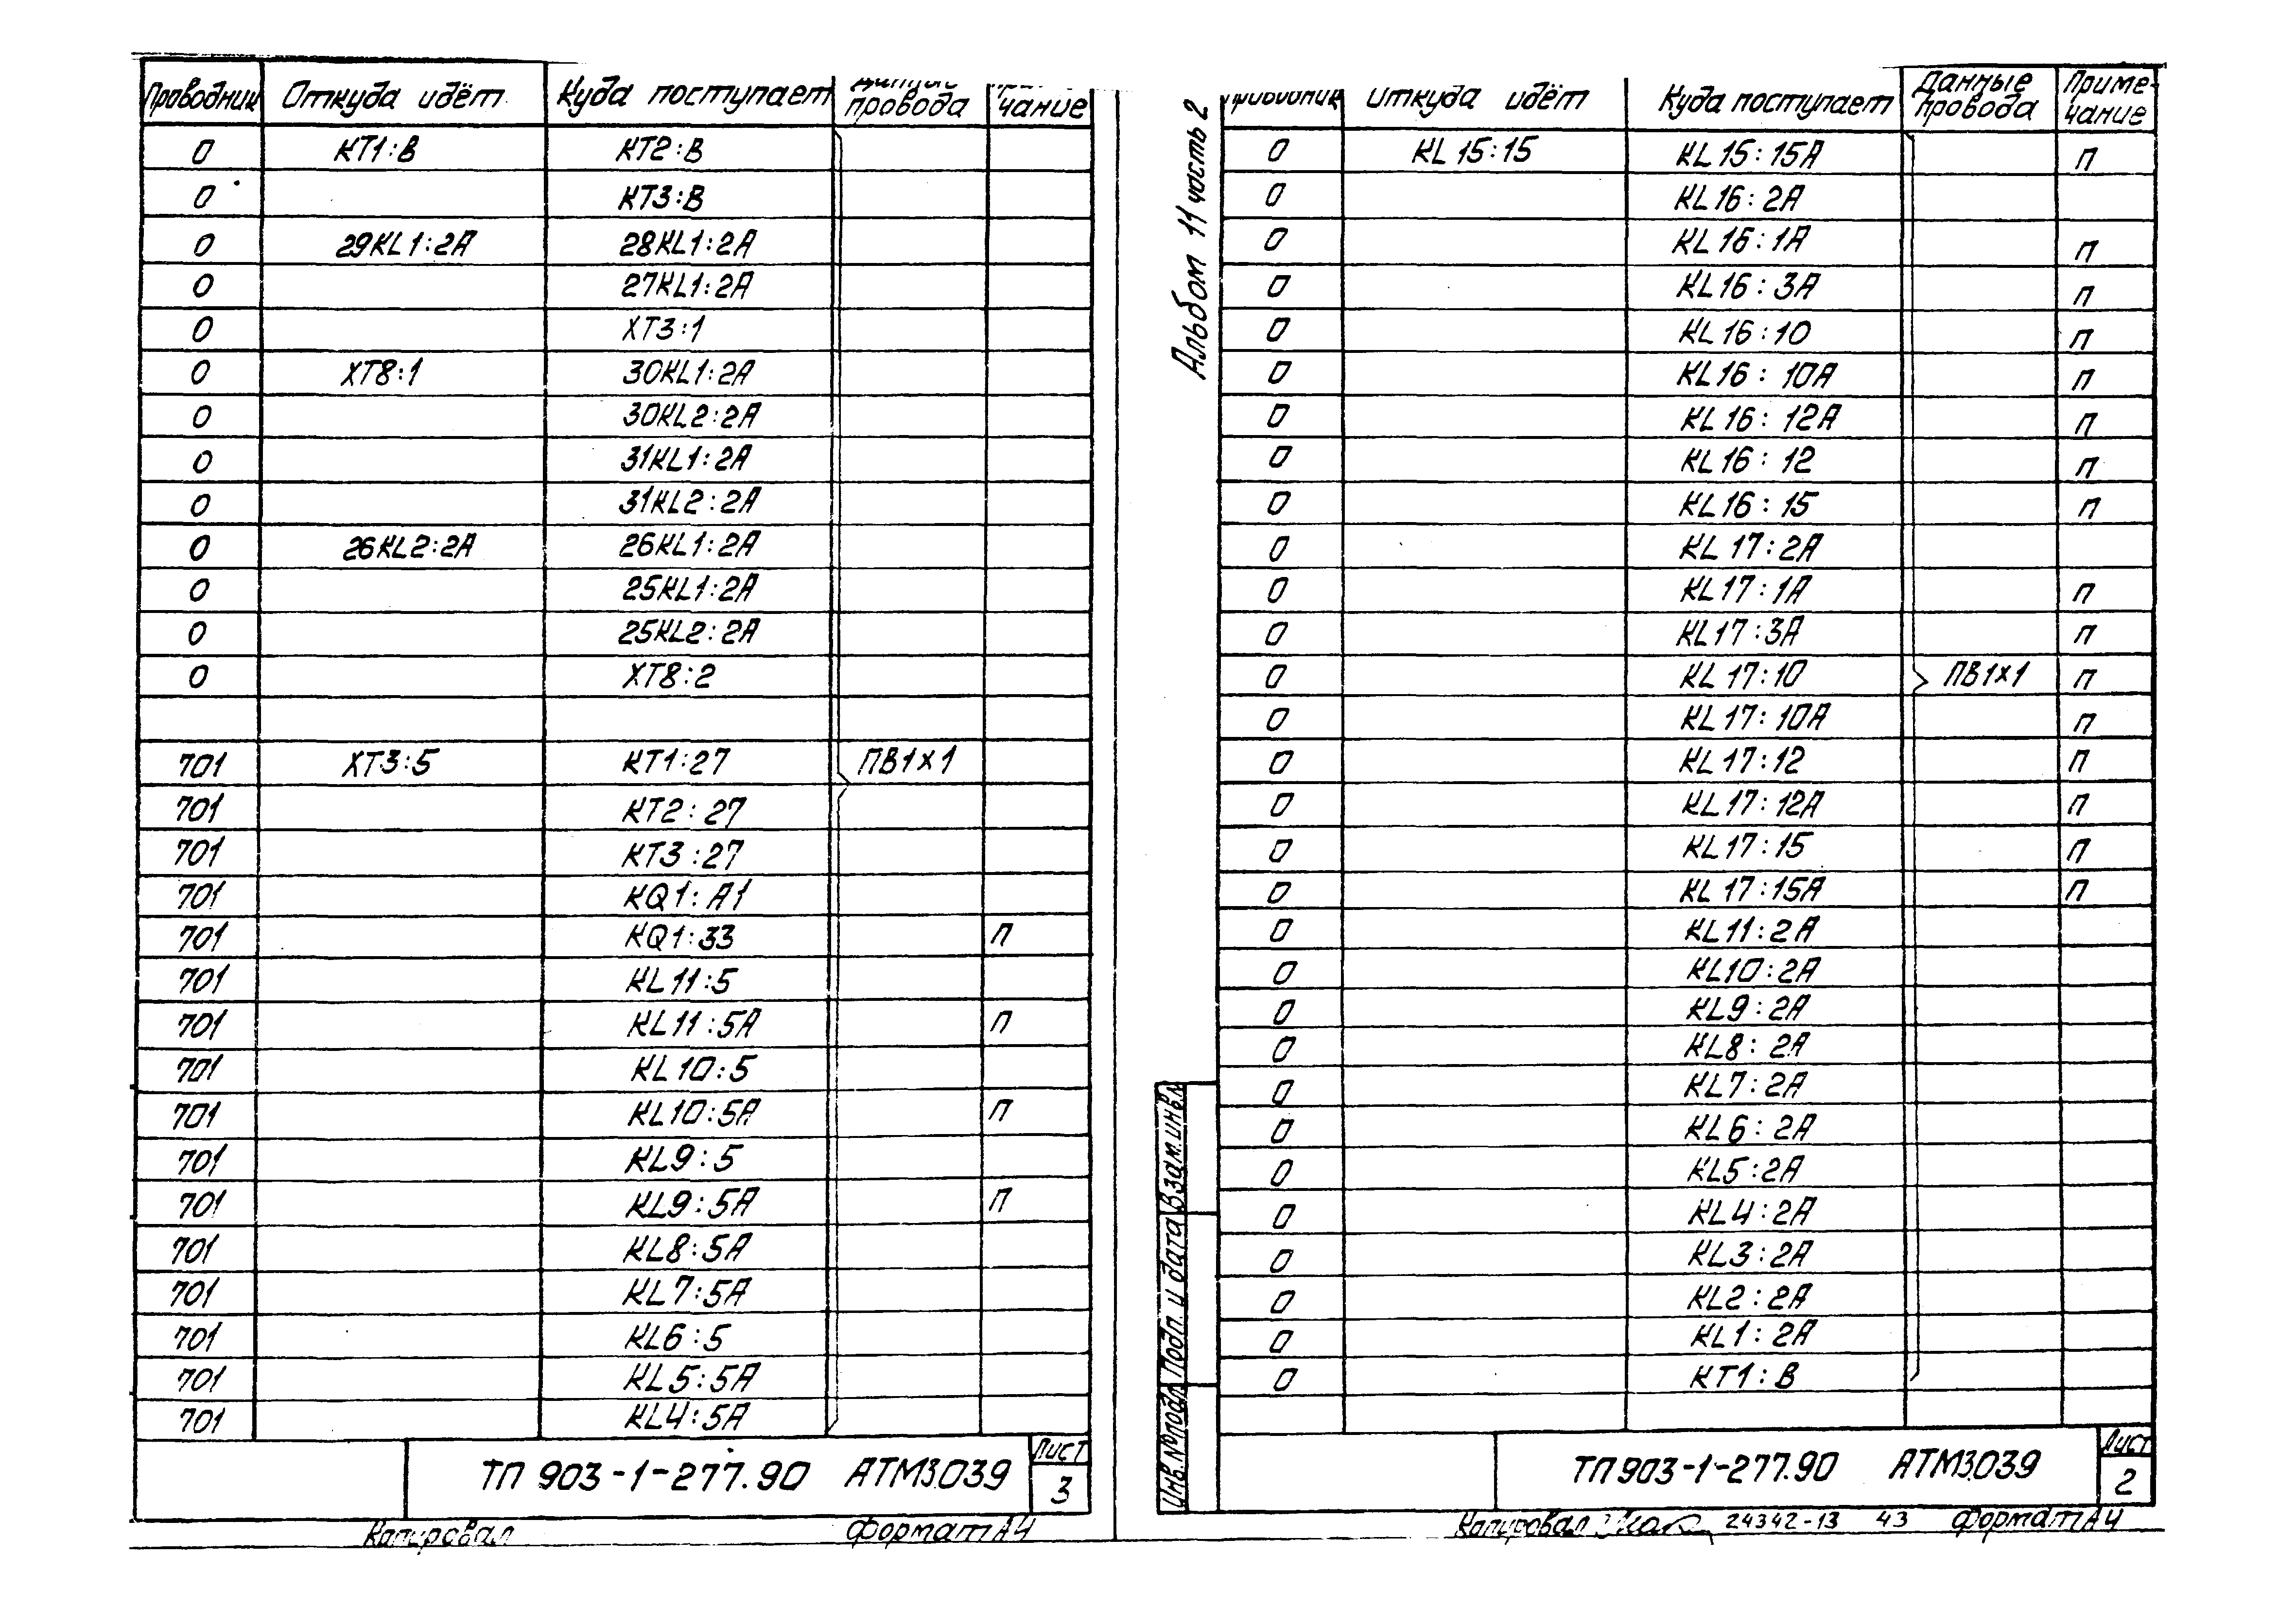 Проводник Откуда идёт Куда поступает провода чание
0 КТ1:В КТ2:В
0 КТ3:В
0 29KL1:2А 28KL1:2А
0 27KL1:2А
0 ХТ3:1
0 ХТ8:1 30KL1:2А
0 30KL2:2А
0 31KL1:2А
0 31KL2:2А
0 26KL2:2А 26KL1:2А
0 25KL1:2А
0 25KL2:2А
0 ХТ8:2
701 ХТ3:5 КТ1:27 ПВ1х1
701 КТ2:27
701 КТ3:27
701 KQ1:А1
701 KQ1:33 П
701 KL11:5
701 KL11:5А П
701 KL10:5
701 KL10:5А П
701 KL9:5
701 KL9:5А П
701 KL8:5А
701 KL7:5А
701 KL6:5
701 KL5:5А
701 KL4:5А
ТП 903-1-277.90 АТМ3.039
Лист
3
Копировал Формат А4
Альбом 11 часть 2
Проводник Откуда идёт Куда поступает Данные провода Приме-чание
0 KL15:15 KL15:15А П
0 KL16:2А
0 KL16:1А П
0 KL16:3А П
0 KL16:10 П
0 KL16:10А П
0 KL16:12А П
0 KL16:12 П
0 KL16:15 П
0 KL17:2А
0 KL17:1А П
0 KL17:3А П
0 KL17:10 ПВ1х1 П
0 KL17:10А П
0 KL17:12 П
0 KL17:12А П
0 KL17:15 П
0 KL17:15А П
0 KL11:2А
0 KL10:2А
0 KL9:2А
0 KL8:2А
0 KL7:2А
0 KL6:2А
0 KL5:2А
0 KL4:2А
0 KL3:2А
0 KL2:2А
0 KL1:2А
0 КТ1:В
Взам.инв.№
Подп. и дата
Инв.№подл.
ТП 903-1-277.90 АТМ3.039
Лист
2
Копировал 24342-13 43 Формат А4